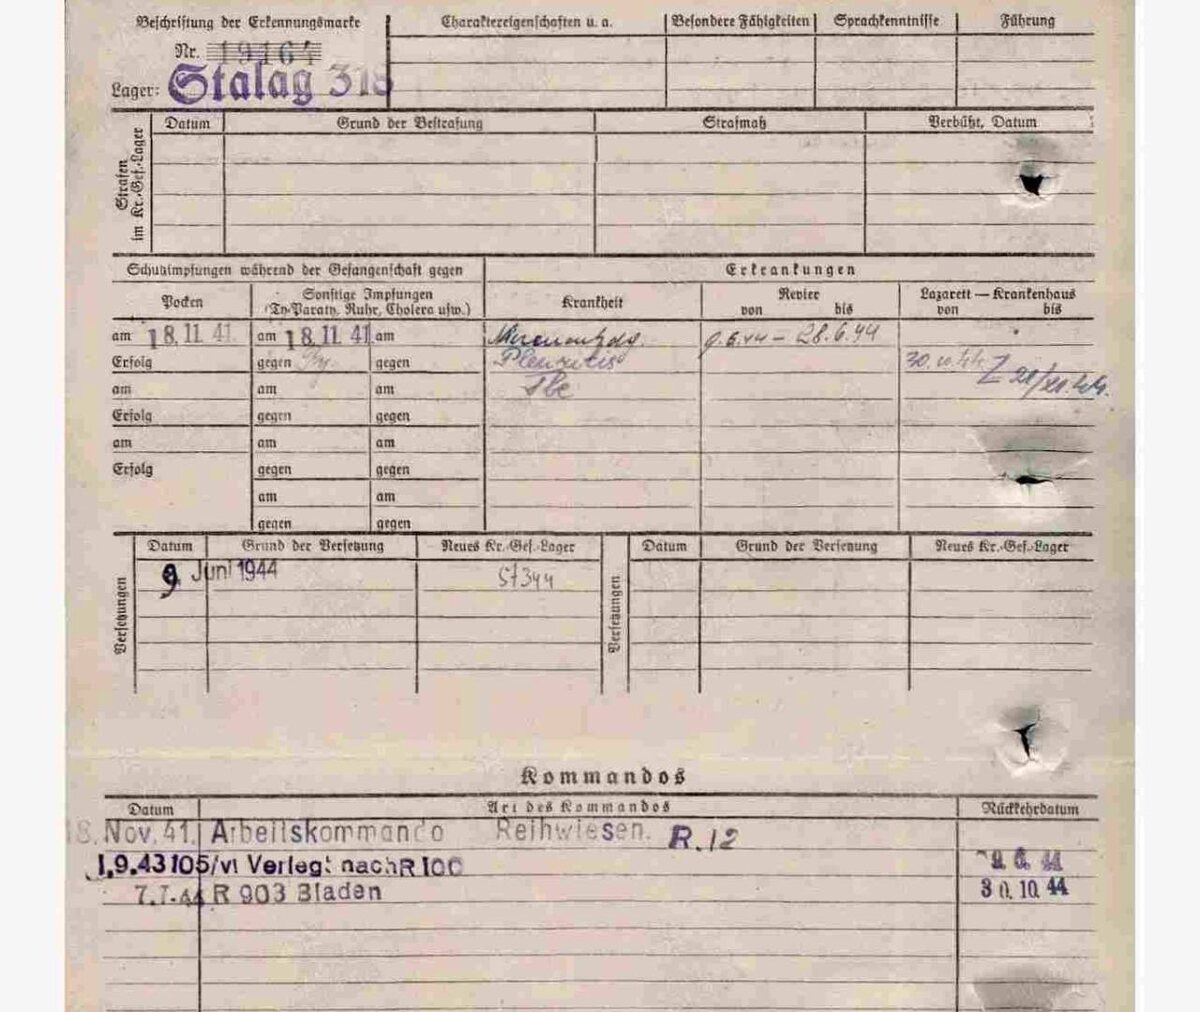 Beschriftung der Erkennungsmarke
Nr. 19164
Lager: Stalag 318
Charaktereigenschaften u. a.
Besondere Fähigkeiten
Sprachkenntnisse
Führung
Strafen im Kr.-Gef.-Lager
Datum
Grund der Bestrafung
Strafmaß
Verbüßt, Datum
Schutzimpfungen während der Gefangenschaft gegen
Erkrankungen
Pocken
Sonstige Impfungen
(Ty.-Paraty. Ruhr, Cholera usw.)
Krankheit
Revier
von bis
Lazarett — Krankenhaus
von bis
am 18.11.41. am 18.11.41 am
9.6.44 – 28.6.44
Erfolg gegen gegen
Pleuritis
30.10.44
am am am
Tbc
21/11.44.
Erfolg gegen gegen
am am am
Erfolg gegen gegen
am am
gegen gegen
Versetzungen
Datum
Grund der Versetzung
Neues Kr.-Gef.-Lager
Versetzungen
Datum
Grund der Versetzung
Neues Kr.-Gef.-Lager
9. Juni 1944 St 344
Kommandos
Datum
Art des Kommandos
Rückkehrdatum
18. Nov. 41. Arbeitskommando Reihwiesen. R.12
1.9.43 105/VI Verlegt nach R 100 9 6. 44
7.7.44 R 903 Bladen 30.10.44